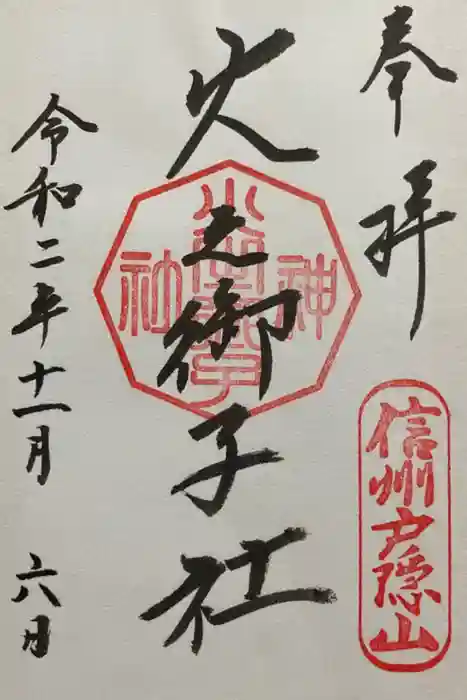 奉拝
信州戸隠山
火之御子社
神社
令和二年十一月六日